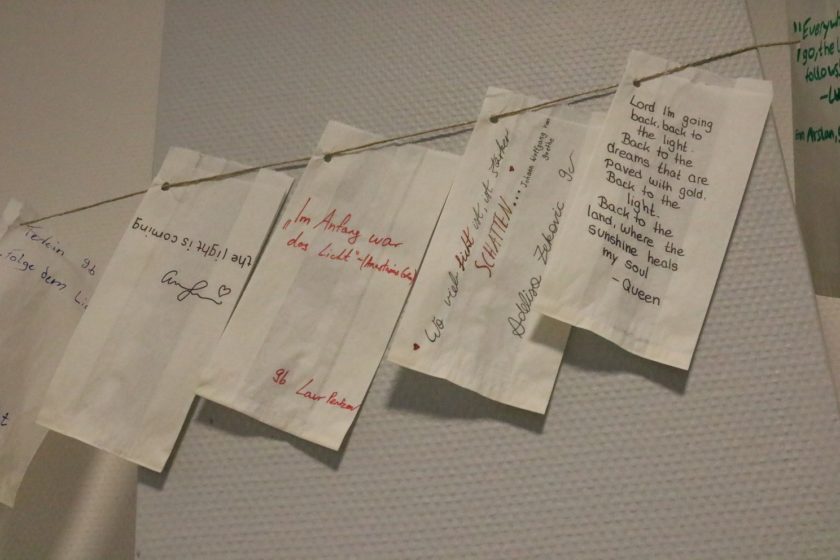 9b
Folge dem
the light is coming
„Im Anfang war
das Licht"
9b Laur
Wo viel Licht ist, ist starker
SCHATTEN...
Johann Wolfgang von
Goethe
9c
Lord I'm going
back, back to
the light.
Back to the
dreams that are
paved with gold.
Back to the
light.
Back to the
land, where the
sunshine heals
my soul
- Queen
"Everyw
I go, the
follows